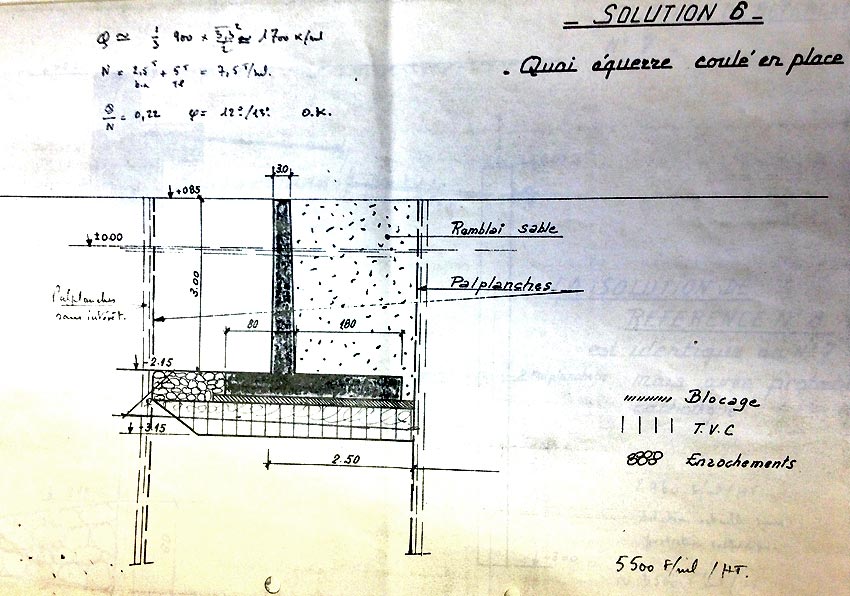 SOLUTION 6
. Quai équerre coulé en place
Q ≃ 1/3 900 × 3,3²/2 ≃ 1700 K/ml
N = 2,5ᵀ + 5ᵀ = 7,5ᵀ/ml.
Q/N = 0,22 φ = 12°/13° O.K.
30
+085
±0.00
Remblai sable
Palplanches
Palplanches
sans intérêt.
3.00
80
180
-2.15
-3.15
2.50
Blocage
T.V.C
Enrochements
5500 F/ml / HT.